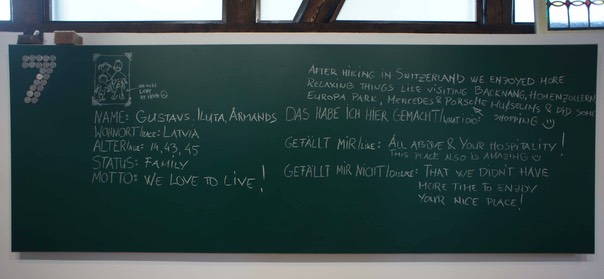 7
AFTER HIKING IN SWITZERLAND WE ENJOYED MORE
RELAXING THINGS LIKE VISITING BACKNANG, HOHENZOLLERN,
EUROPA PARK, MERCEDES & PORSCHE MUSEUMS & DID SOME
SHOPPING
NAME: GUSTAVS, ILUTA, ĀRMANDS
WOHNORT/PLACE: LATVIA
ALTER/AGE: 14, 43, 45
STATUS: FAMILY
MOTTO: WE LOVE TO LIVE!
DAS HABE ICH HIER GEMACHT/WHAT I DO:
GEFÄLLT MIR/LIKE: ALL ABOVE & YOUR HOSPITALITY!
THIS PLACE ALSO IS AMAZING
GEFÄLLT MIR NICHT/DISLIKE: THAT WE DIDN'T HAVE
MORE TIME TO ENJOY
YOUR NICE PLACE!